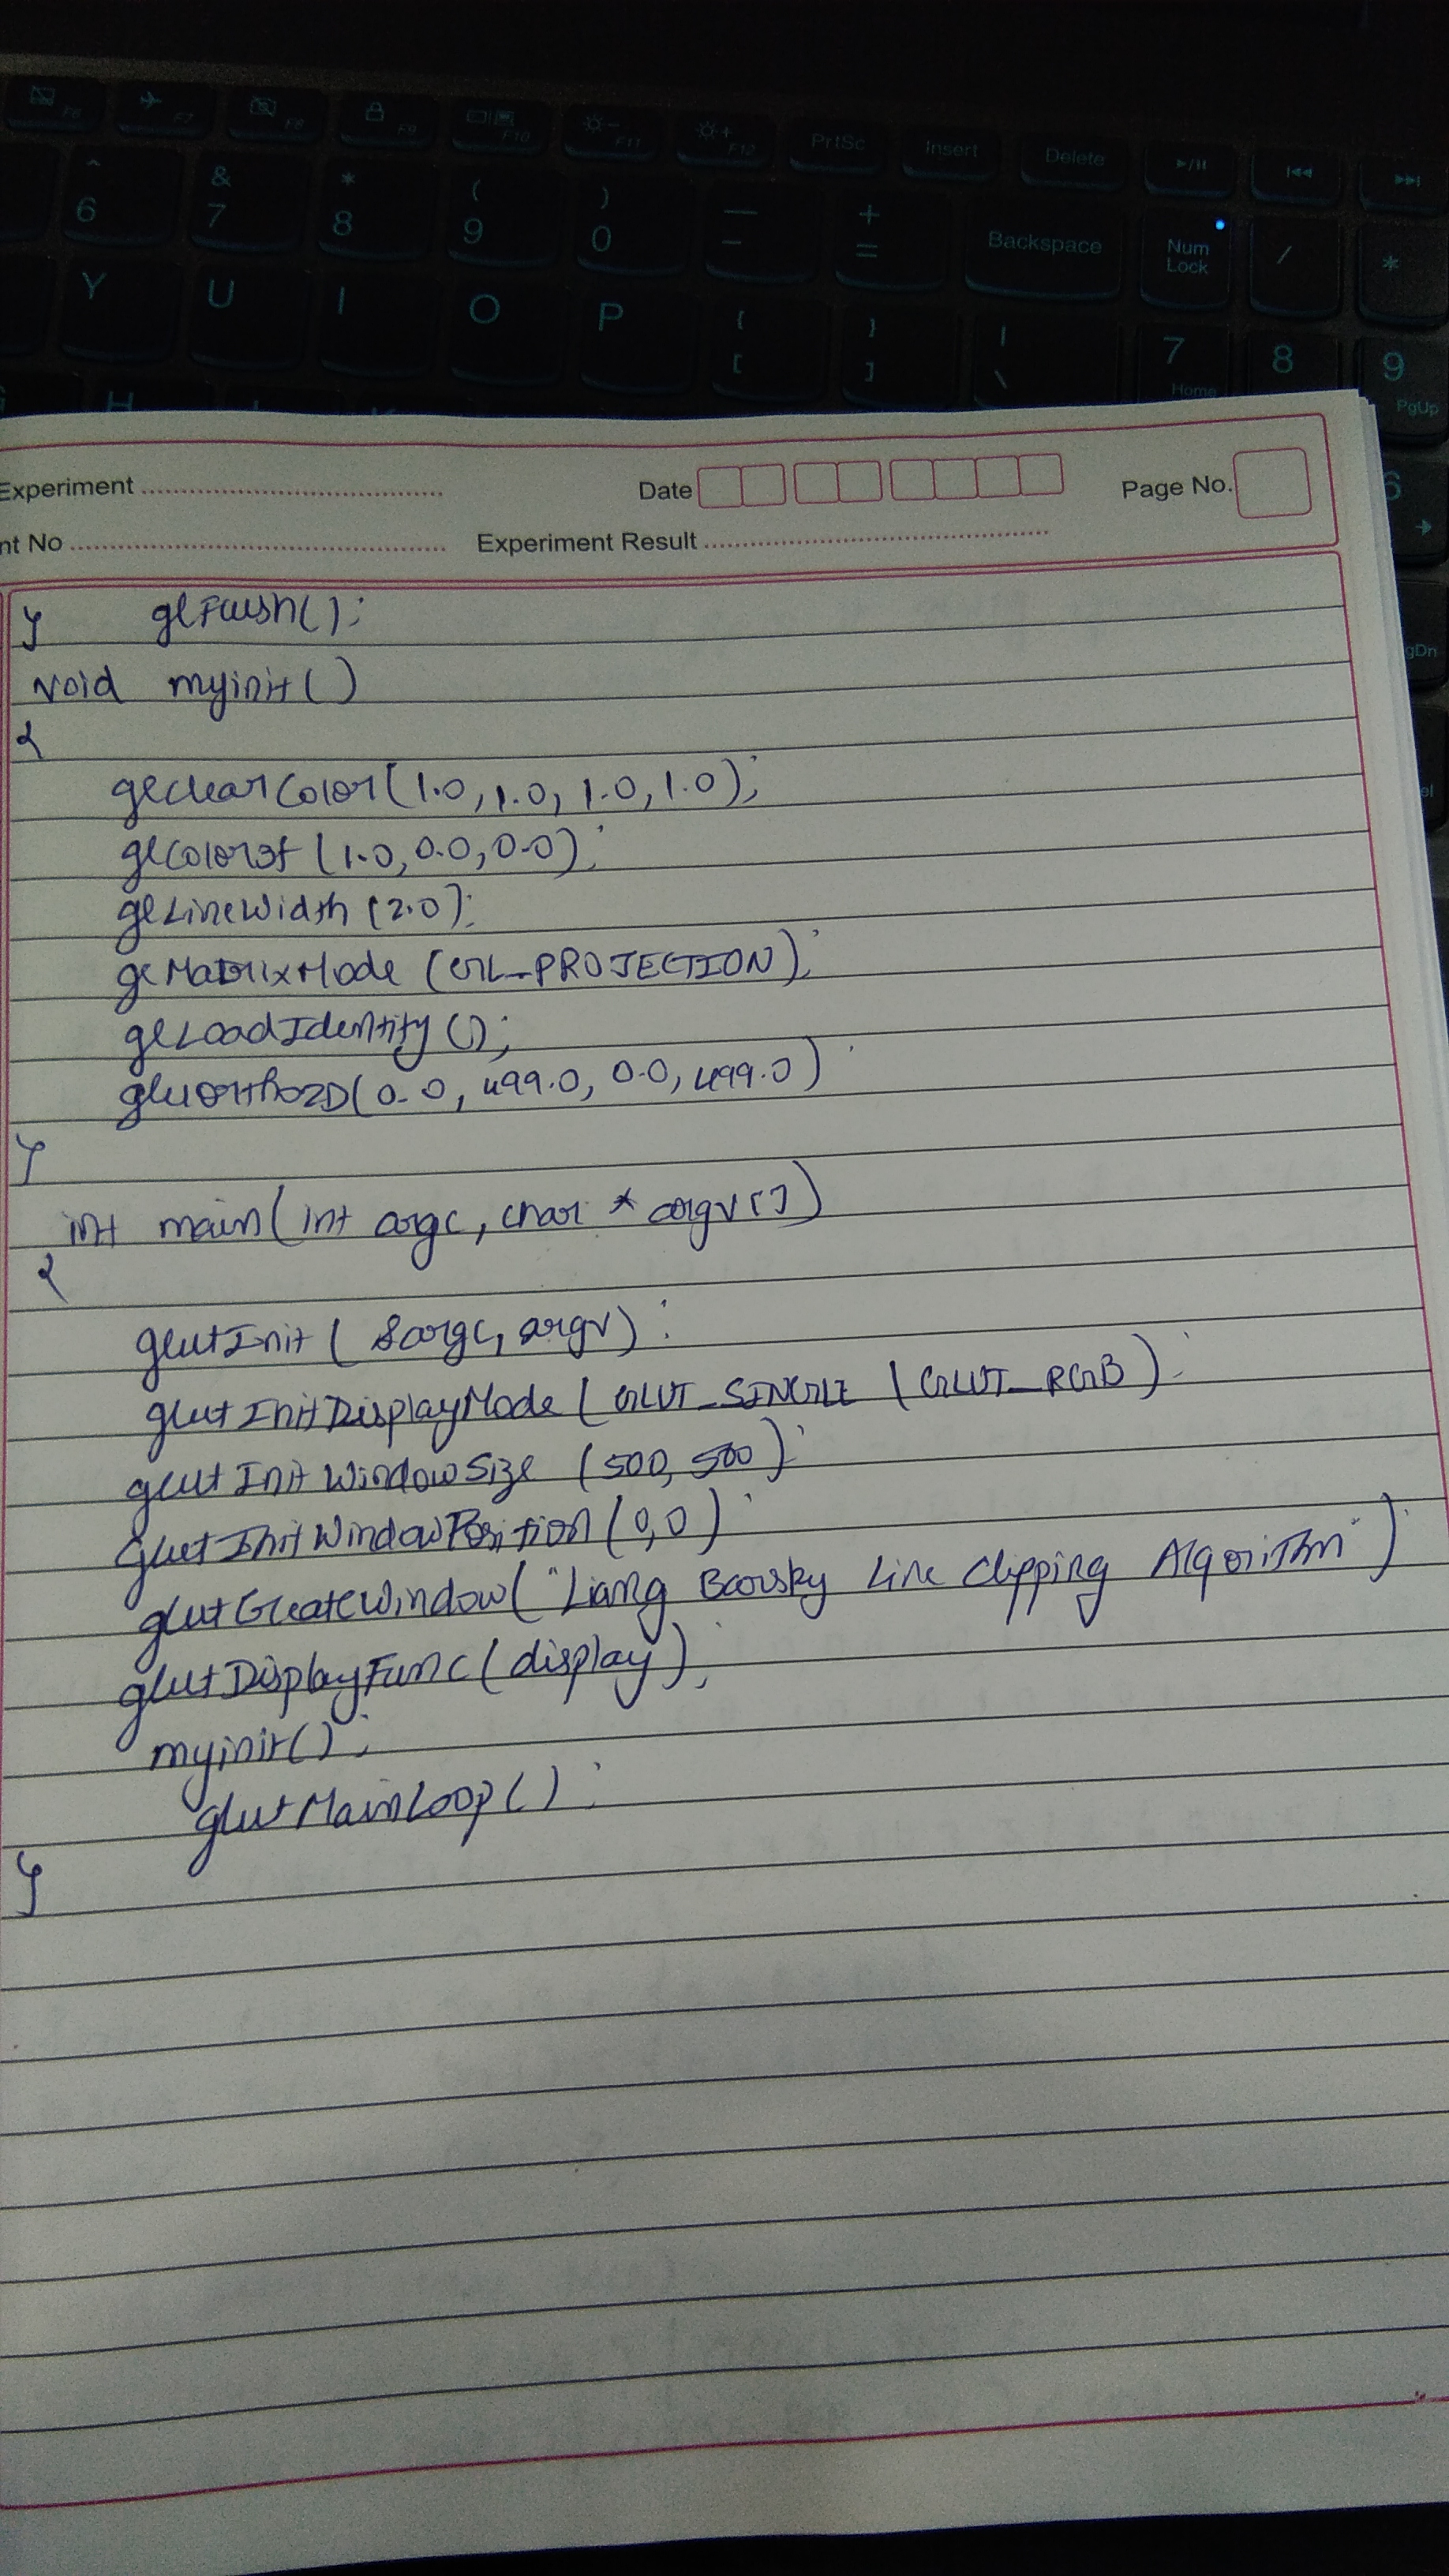 F6 F7 F8 F9 F10 F11 F12 PrtSc Insert Delete
^ & * ( ) — +
6 7 8 9 0 - = Backspace Num Lock / *
Y U I O P { } |
[ ] \ 7 8 9
Home PgUp
H
6
Experiment Date Page No.
nt No Experiment Result
gDn
el
} glFlush();
void myinit()
{
glClearColor(1.0,1.0,1.0,1.0);
glColor3f(1.0,0.0,0.0);
glLineWidth(2.0);
glMatrixMode(GL_PROJECTION);
glLoadIdentity();
gluOrtho2D(0.0,499.0,0.0,499.0);
}
int main(int argc, char * argv[])
{
glutInit(&argc, argv);
glutInitDisplayMode(GLUT_SINGLE | GLUT_RGB);
glutInitWindowSize (500,500);
glutInitWindowPosition(0,0);
glutCreateWindow("Liang Barsky Line Clipping Algorithm");
glutDisplayFunc(display);
myinit();
glutMainLoop();
}